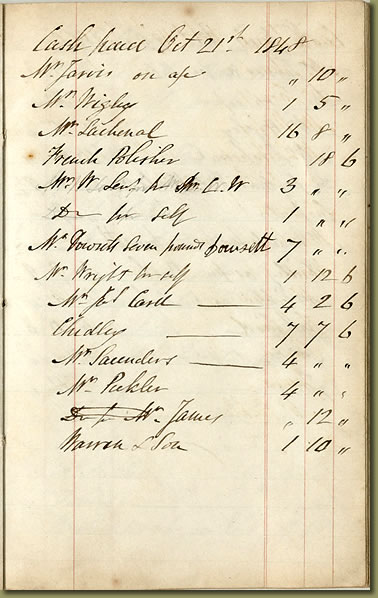 Cash paid Oct 21st 1848
Mr Jarvis on a/c " 10 "
Mr Wigley 1 5 "
Mr Lachenal 16 8 "
French Polisher 18 6
Mr W for Mr C. W 3 " "
Do for Self 1 " "
Mr Dowsett Seven pounds Dowsett 7 " "
Mr Wright for self 1 12 6
Mr Jos Card — 4 2 6
Chidley — 7 7 6
Mr Saunders — 4 " "
Mr Pickler 4 " "
Mr James " 12 "
Warren & Son 1 10 "